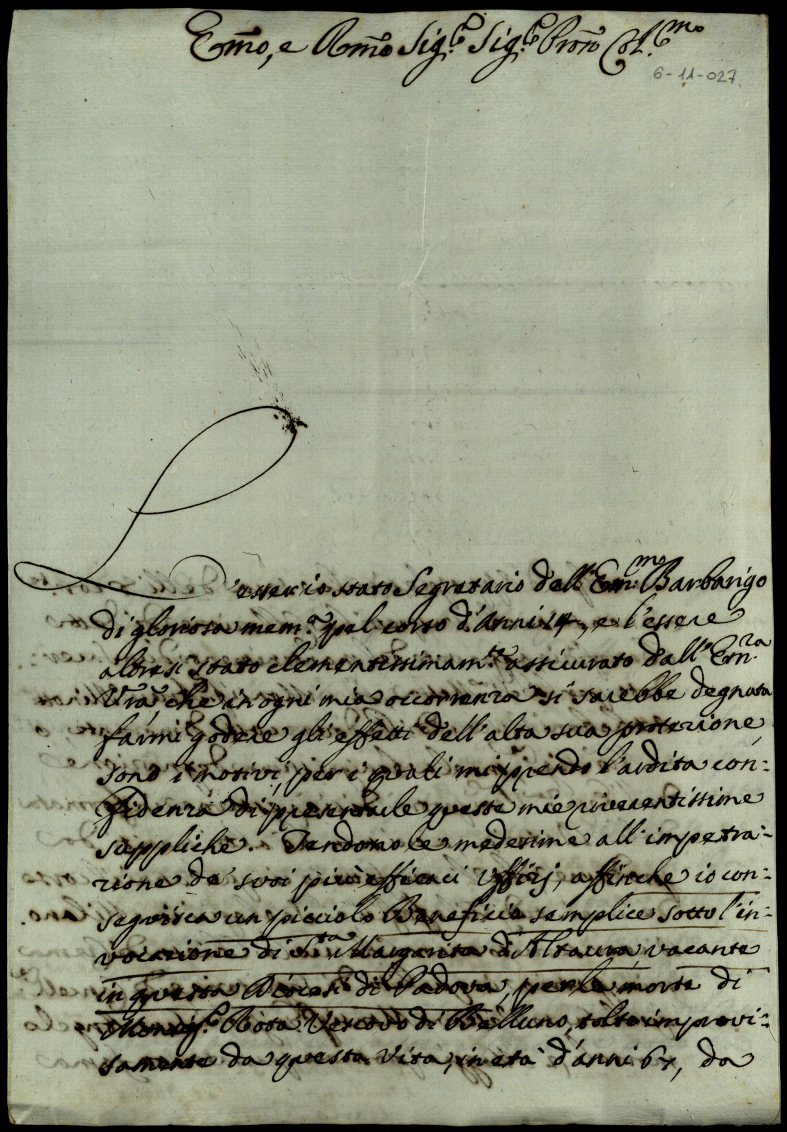 Em̃o, e Rm̃o Sig.r Sig.r Pron̄o Col.mo
6-11-027
L'esser io stato Segretario dell'Em.mo Barbarigo
di gloriosa mem.a pel corso d'Anni 14, e l'essere
altresì stato clementissimam.te assicurato dall'Em.ra
Vra, che in ogni mia occorrenza si sarebbe degnata
farmi godere gli effetti dell'alta sua protezione,
sono i motivi, per i quali mi prendo l'ardita con:
fidenza di presentarle queste mie riverentissime
suppliche. Tendono le medesime all'impetra:
zione de' suoi più efficaci Uffizj, affinche io con:
seguisca un picciolo Beneficio semplice sotto l'in:
vocazione di S.ta Margarita d'Altaura vacante
in questa Diocesi di Padova, per la morte di
Monsig.r Rota Vescovo di Belluno, tolto improvi:
samente da questa vita, in età d'anni 67, da